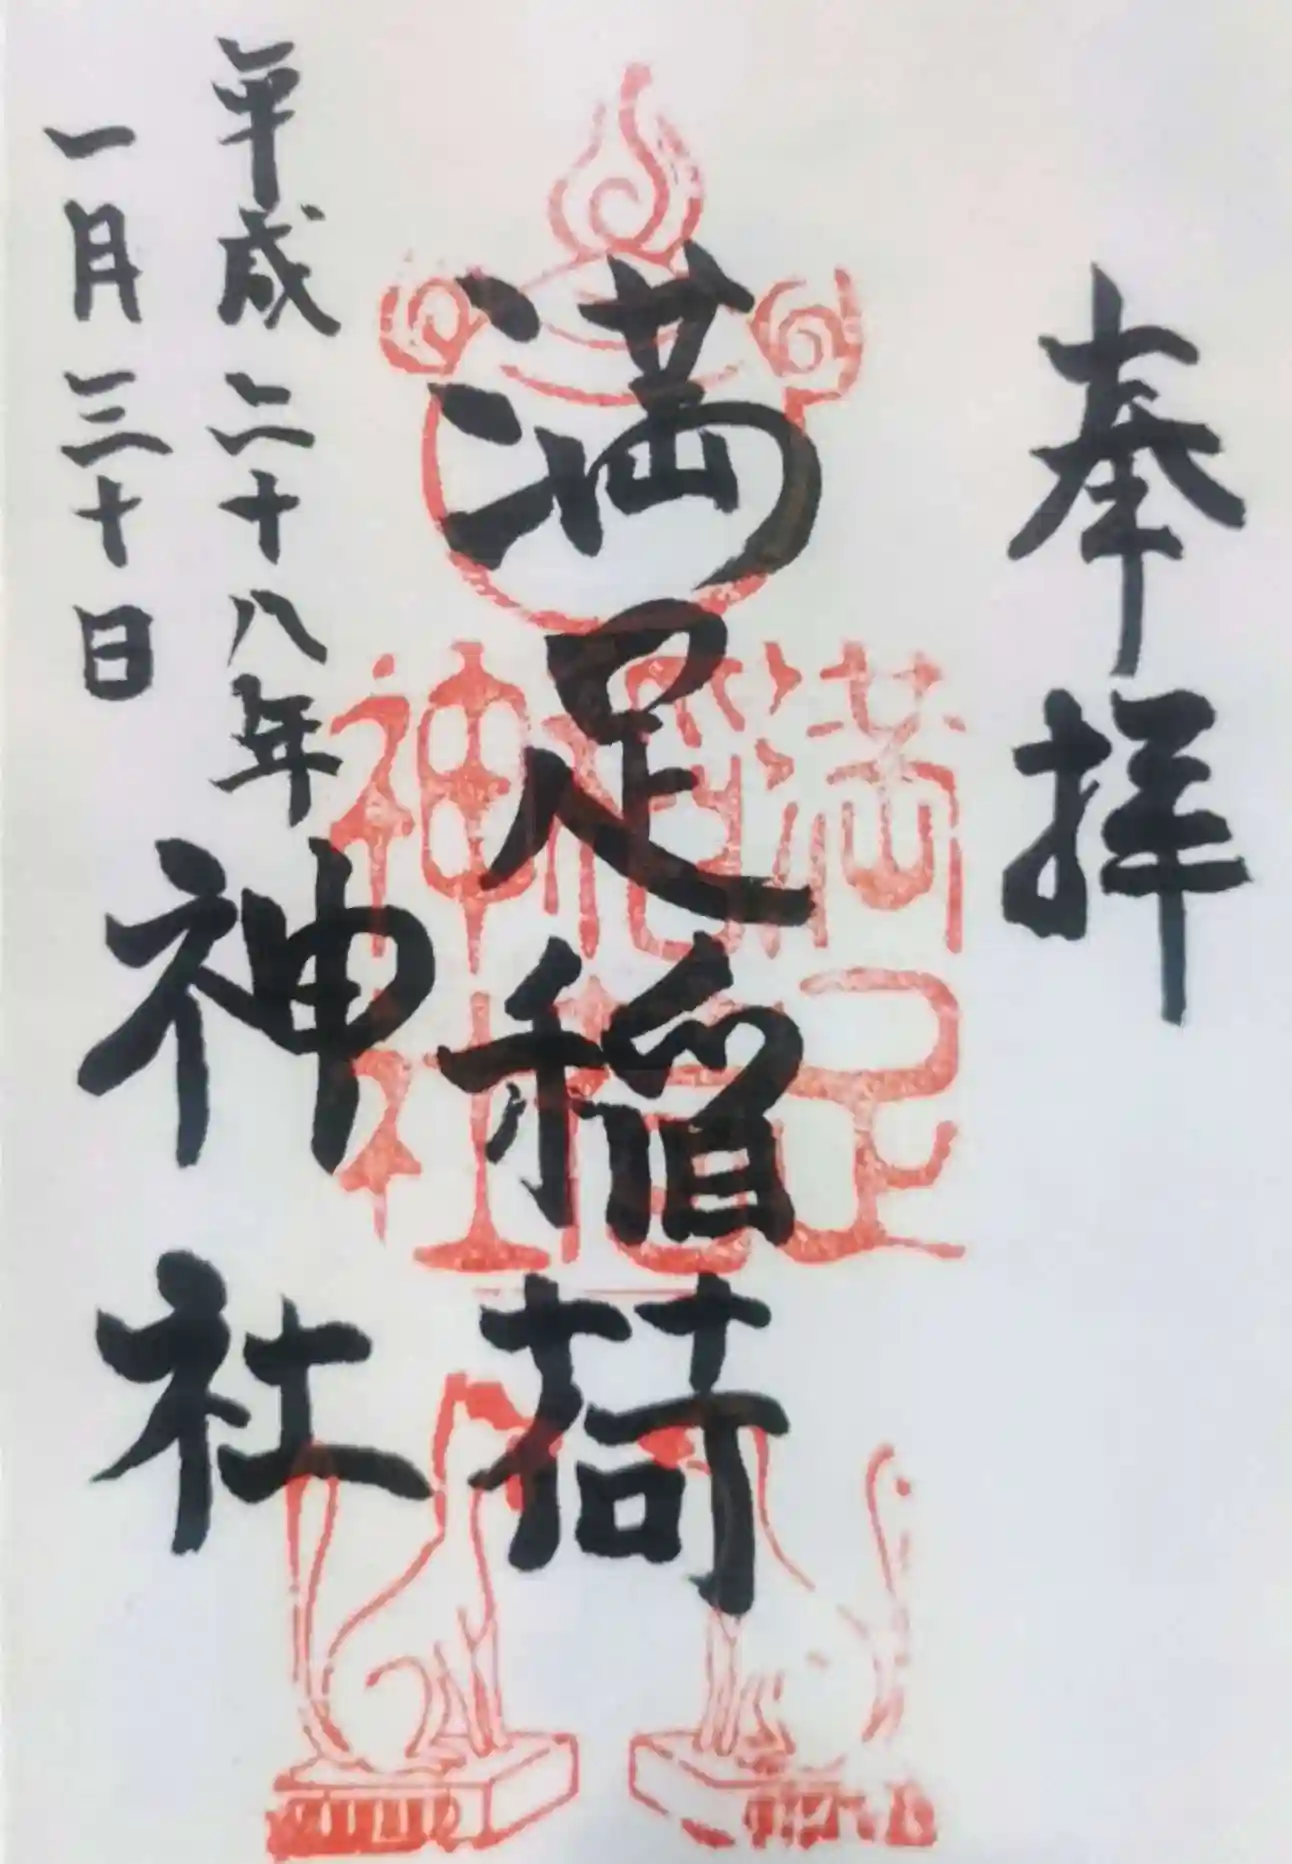 奉拝
満足稲荷
神社
平成二十八年
一月三十日
満足
稲荷
神社